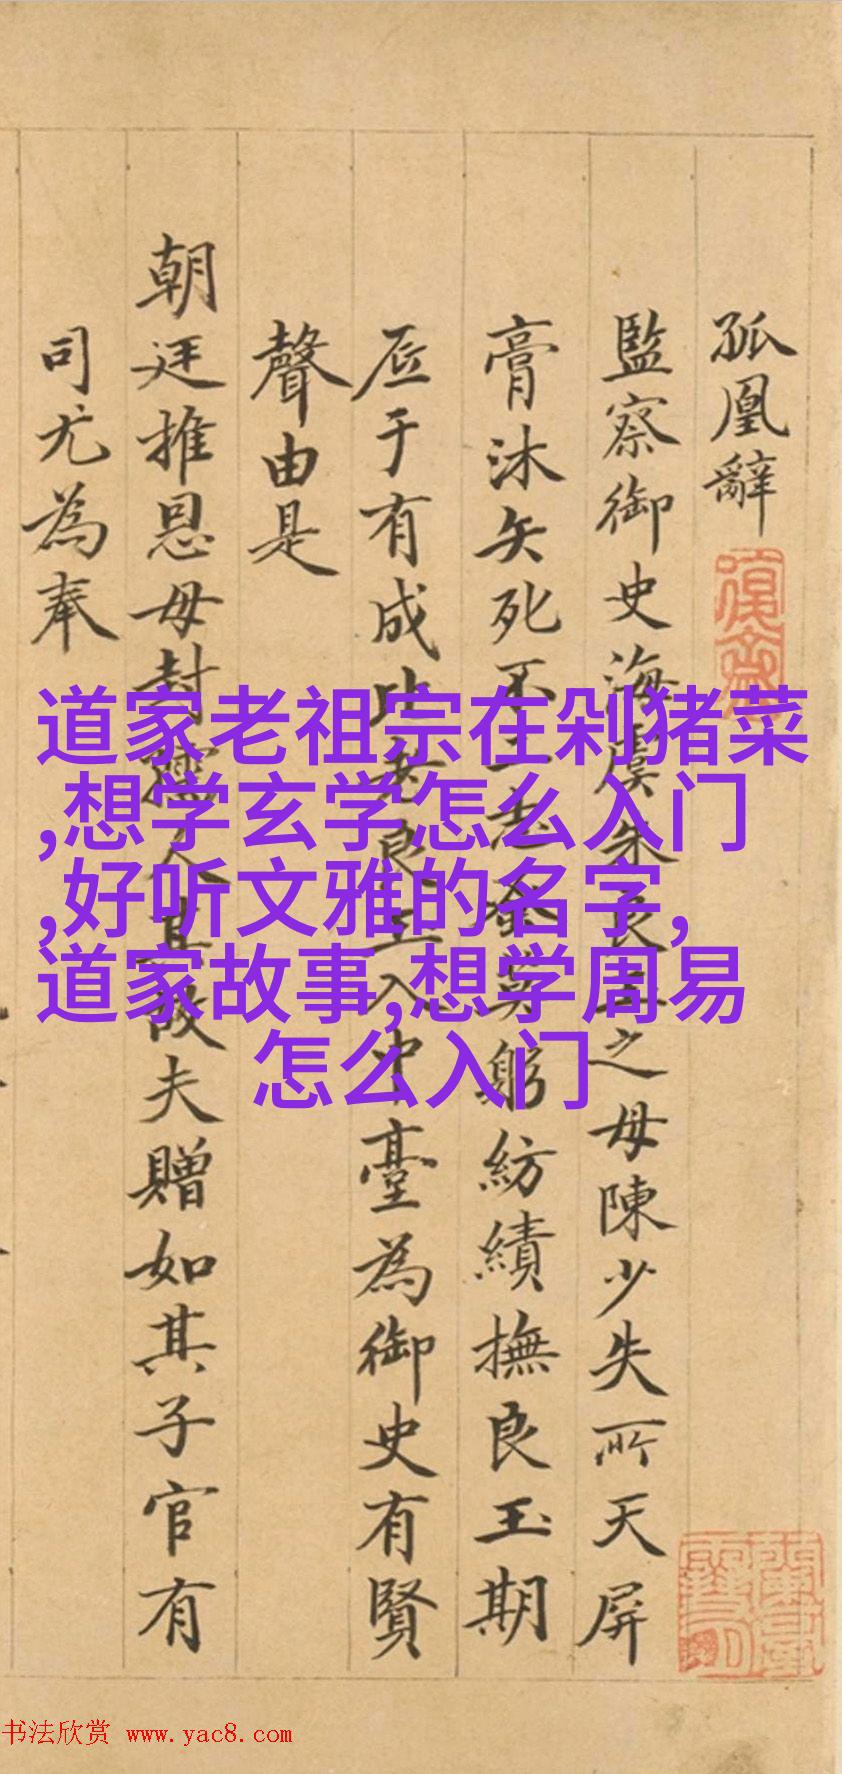 孤凰辭
監察御史海虞朱良玉之母陳少失所天屏
膏沐矢死不二志金 躬紡績撫良玉期
底于有成比老良玉入中臺為御史有賢
聲由是
朝廷推恩母封孺人其故夫贈如其子官有
司尤為奉
道家老祖宗在剁猪菜
,想学玄学怎么入门
,好听文雅的名字,
道家故事,想学周易
怎么入门
书法欣赏 www.yac8.com